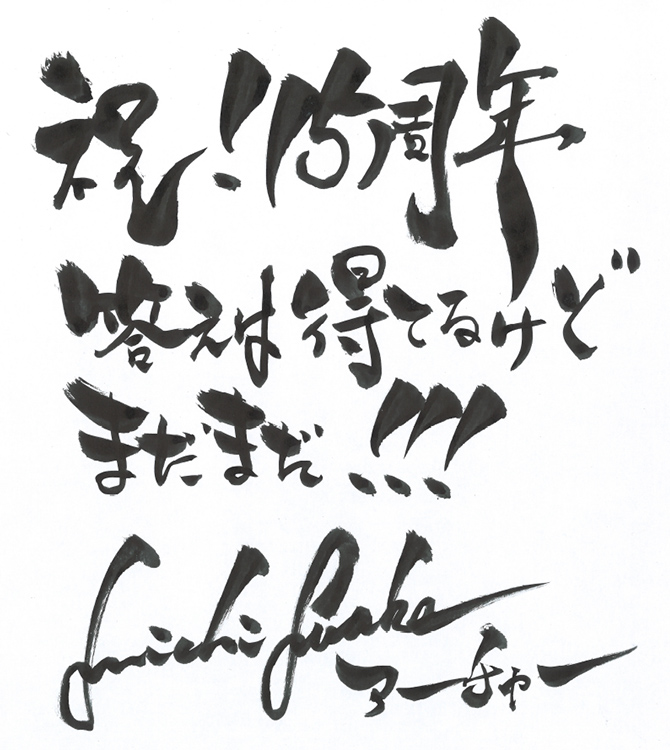 祝！15周年
答えは得てるけど
まだまだ！！！
Junichi Suwabe
アーチャー